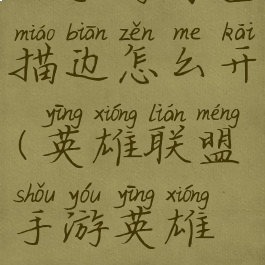 miáo biān zěn me kāi
描边怎么开
yīng xióng lián méng
(英雄联盟
shǒu yóu yīng xióng
手游英雄